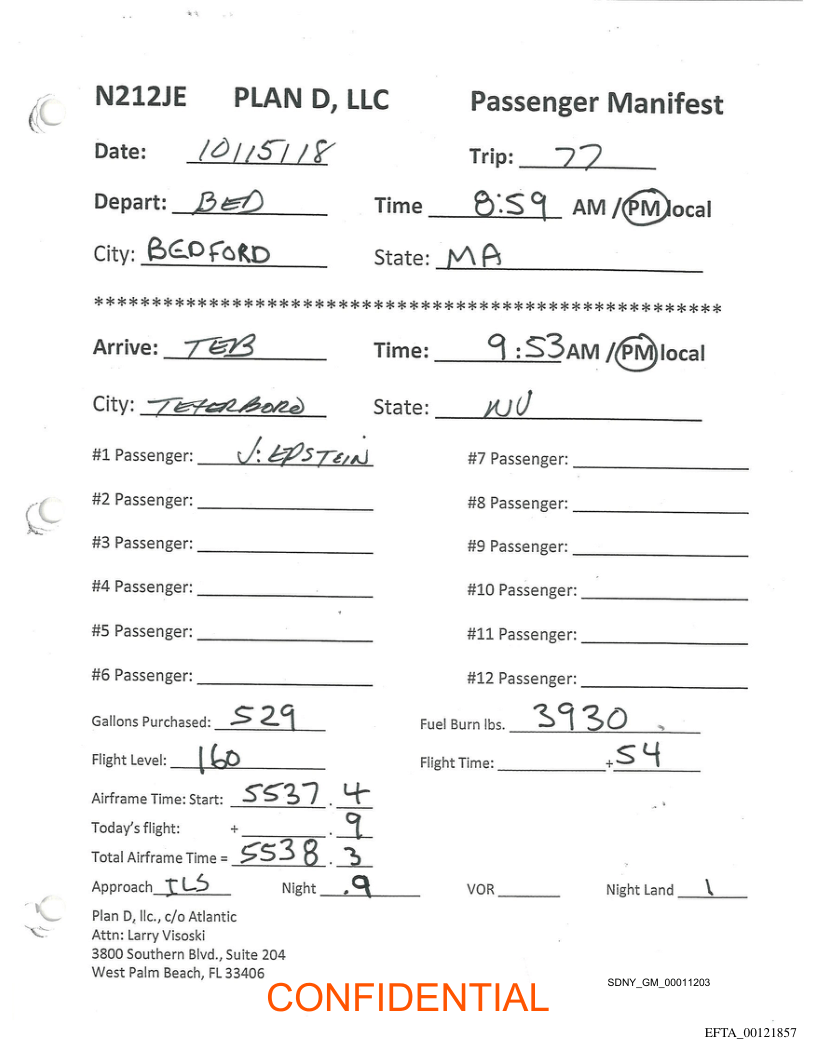 N212JE PLAN D, LLC Passenger Manifest
Date: 10/15/18 Trip: 77
Depart: BED Time 8:59 AM / PM local
City: BEDFORD State: MA
******************************************************
Arrive: TEB Time: 9:53 AM / PM local
City: TETERBORO State: NJ
#1 Passenger: J. EPSTEIN #7 Passenger:
#2 Passenger: #8 Passenger:
#3 Passenger: #9 Passenger:
#4 Passenger: #10 Passenger:
#5 Passenger: #11 Passenger:
#6 Passenger: #12 Passenger:
Gallons Purchased: 529 Fuel Burn lbs. 3930
Flight Level: 160 Flight Time: + 54
Airframe Time: Start: 5537 . 4
Today's flight: + . 9
Total Airframe Time = 5538 . 3
Approach ILS Night .9 VOR Night Land 1
Plan D, llc., c/o Atlantic
Attn: Larry Visoski
3800 Southern Blvd., Suite 204
West Palm Beach, FL 33406
CONFIDENTIAL
SDNY_GM_00011203
EFTA_00121857